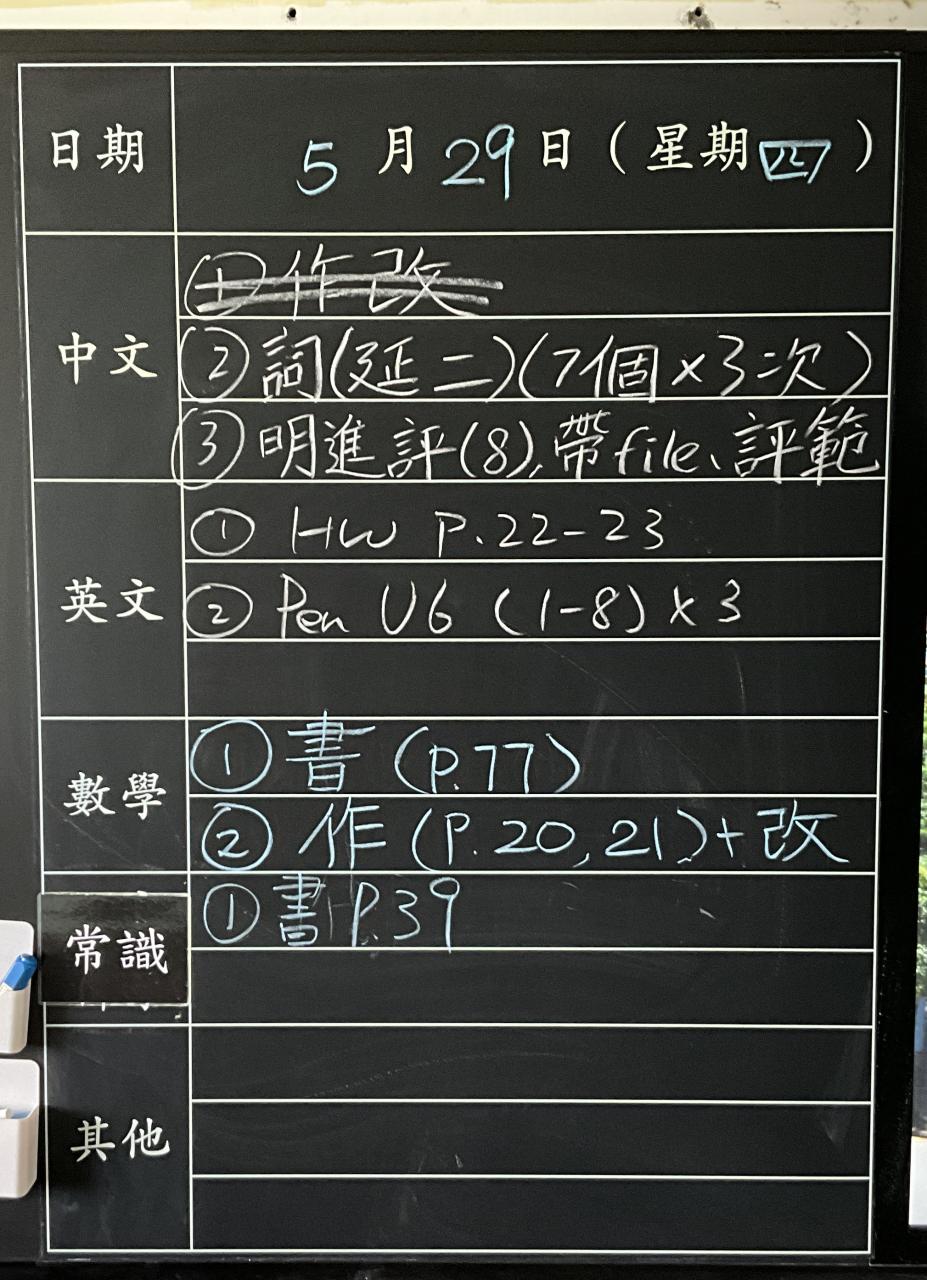 日期 5月29日(星期四)
中文
①作改
②詞(延二)(7個×3次)
③明進評(8)、帶file、評範
英文
① HW P.22-23
② Pen U6 (1-8) × 3
數學
① 書 (P.77)
② 作 (P.20, 21)+改
常識
① 書 P.39
其他